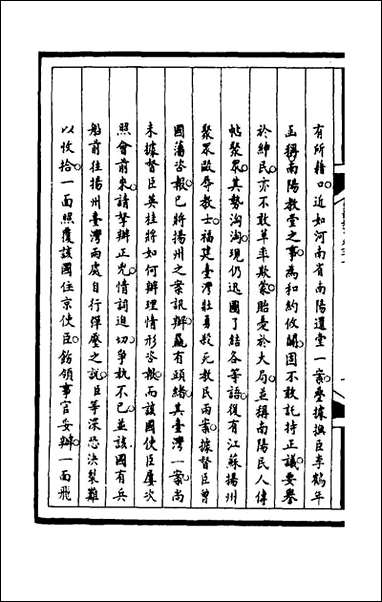 有所藉口近如河南省南陽還堂一案疊據撫臣李鶴年
函稱南陽教堂之事為和約攸關固不敢託持正議要譽
於紳民亦不敢草率欺蒙貽憂於大局並稱南陽民人傳
帖聚眾其勢洶洶現仍迅圖了結各等語復有江蘇揚州
聚眾毆辱教士福建臺灣壯勇毆死教民兩案據督臣曾
國藩咨報已將揚州之案訊辦麤有頭緒其臺灣一案尚
未據督臣英桂將如何辦理情形咨報而該國使臣屢次
照會前來請拏辦正兇情詞迫切爭執不已並該國有兵
船前往揚州臺灣兩處自行彈壓之說臣等深恐決裂難
以收拾一面照覆該國住京使臣飭領事官妥辦一面飛